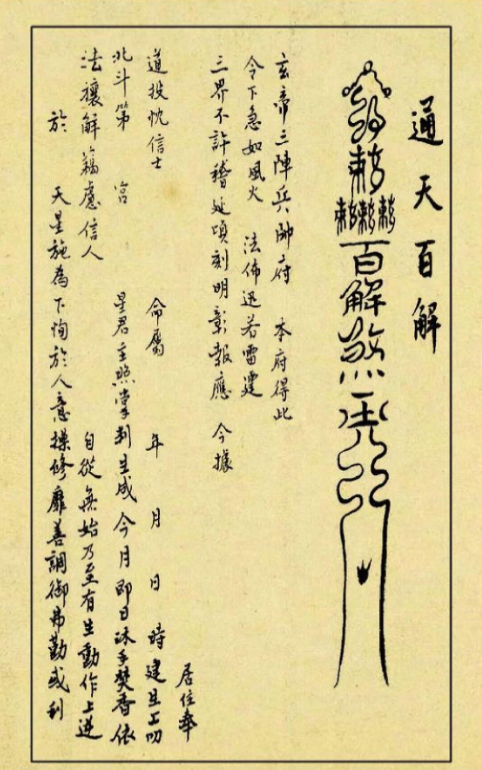 通天百解
敕
敕敕敕
百解煞
玄帝三陣兵帥府 本府得此
令下急如風火 法佈迅若雷霆
三界不許稽延頃刻明彰報應 今據
居住奉
道投忱信士 命屬 年 月 日 時建生上叩
北斗第 宮 星君主照掌判生成 今月即日沐手焚香依
法禳解 藉慮信人 自從無始乃至有生動作上逆
於 天星施為下悔於人意操修靡善調御弗勤或利